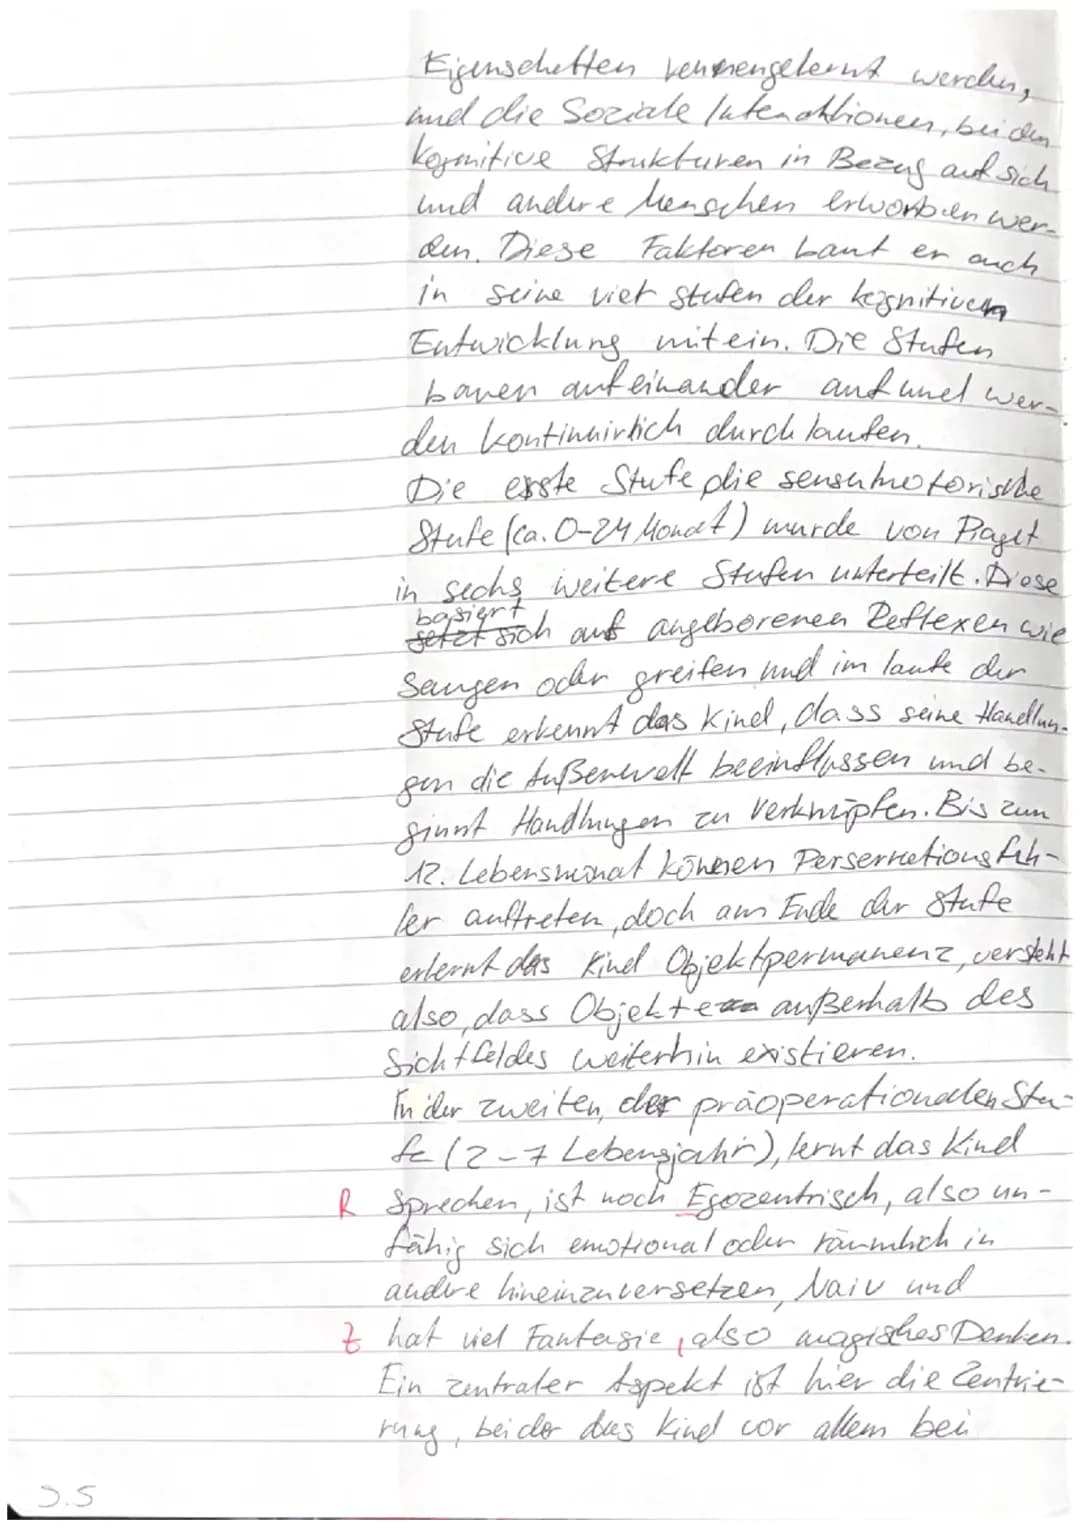 Eigenschaften kennengelernt werden,
und die Soziale Interaktionen, bei den
Kognitive Strukturen in Bezug auf sich
und andere Menschen erworben wer-
den. Diese Faktoren baut er auch
in seine vier Stufen der kognitiven
Entwicklung mit ein. Die Stufen
bauen aufeinander auf und wer-
den kontinuirlich durchlaufen.
Die erste Stufe, die sensumotorische
Stufe (ca. 0-24 Monat) wurde von Piaget
in sechs weitere Stufen unterteilt. Diese
basiert
setzt sich auf angeborenen Reflexen wie
Saugen oder greifen und im laufe der
Stufe erkennt das Kind, dass seine Handlun-
gen die Außenwelt beeinflussen und be-
ginnt Handlungen zu verknüpfen. Bis zum
12. Lebensmonat können Perserverationsfeh-
ler auftreten, doch am Ende der Stufe
erlernt das Kind Objektpermanenz, versteht
also, dass Objekte außerhalb des
Sichtfeldes weiterhin existieren.
In der zweiten, der präoperationalen Stu-
fe (2-7 Lebensjahr), lernt das Kind
R Sprechen, ist noch Egozentrisch, also un-
fähig sich emotional oder räumlich in
andere hineinzuversetzen, Naiv und
Z hat viel Fantasie, also magisches Denken.
Ein zentraler Aspekt ist hier die Zentrie-
rung, bei der das Kind vor allem bei
S.5